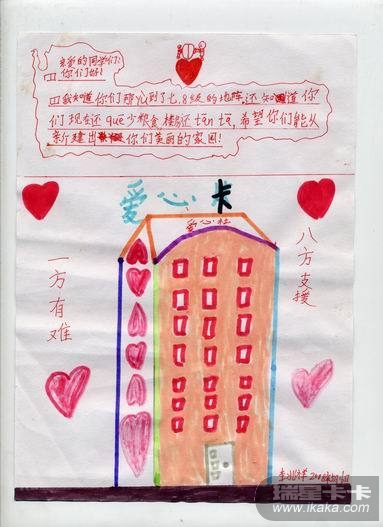 亲爱的同学们:
你们好!
我知道你们那儿到了七.8级的地阵,还知道你
们现在还què少粮食 希望你们能从
新建出 你们美丽的家园!
爱心卡
爱心社
一方有难
八方支援
瑞星卡卡
www.ikaka.com